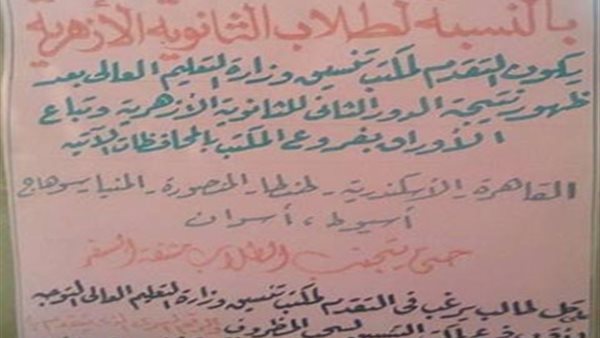 بالنسبة لطلاب الثانوية الأزهرية
يكون التقدم لمكتب تنسيق وزارة التعليم العالى بعد
ظهور نتيجة الدور الثانى للثانوية الأزهرية وتباع
الأوراق بفروع المكتب بالمحافظات الآتية
القاهرة - الأسكندرية - طنطا - المنصورة - المنيا - سوهاج
أسيوط ، أسوان
حتى يتجنب الطلاب مشقة السفر
على كل طالب يرغب فى التقدم لمكتب تنسيق وزارة التعليم العالى التوجه
فرع مكتب التنسيق لسحب المظروف